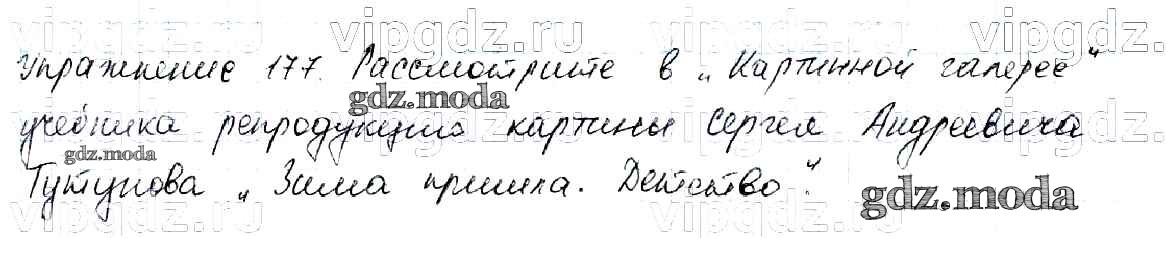 vipgdz.ru vipgdz.ru vipgdz.ru
Упражнение 177. Рассмотрите в „Картинной галерее“
gdz.moda
учебника репродукцию картины Сергея Андреевича
vipgdz.ru vipgdz.ru vipgdz.ru
gdz.moda
Тутунова „Зима пришла. Детство“.
gdz.moda
vipgdz.ru vipgdz.ru vipgdz.ru